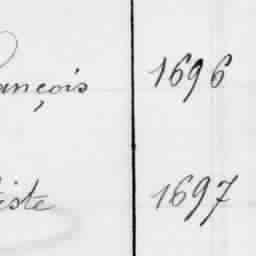 ançois 1696
iste 1697